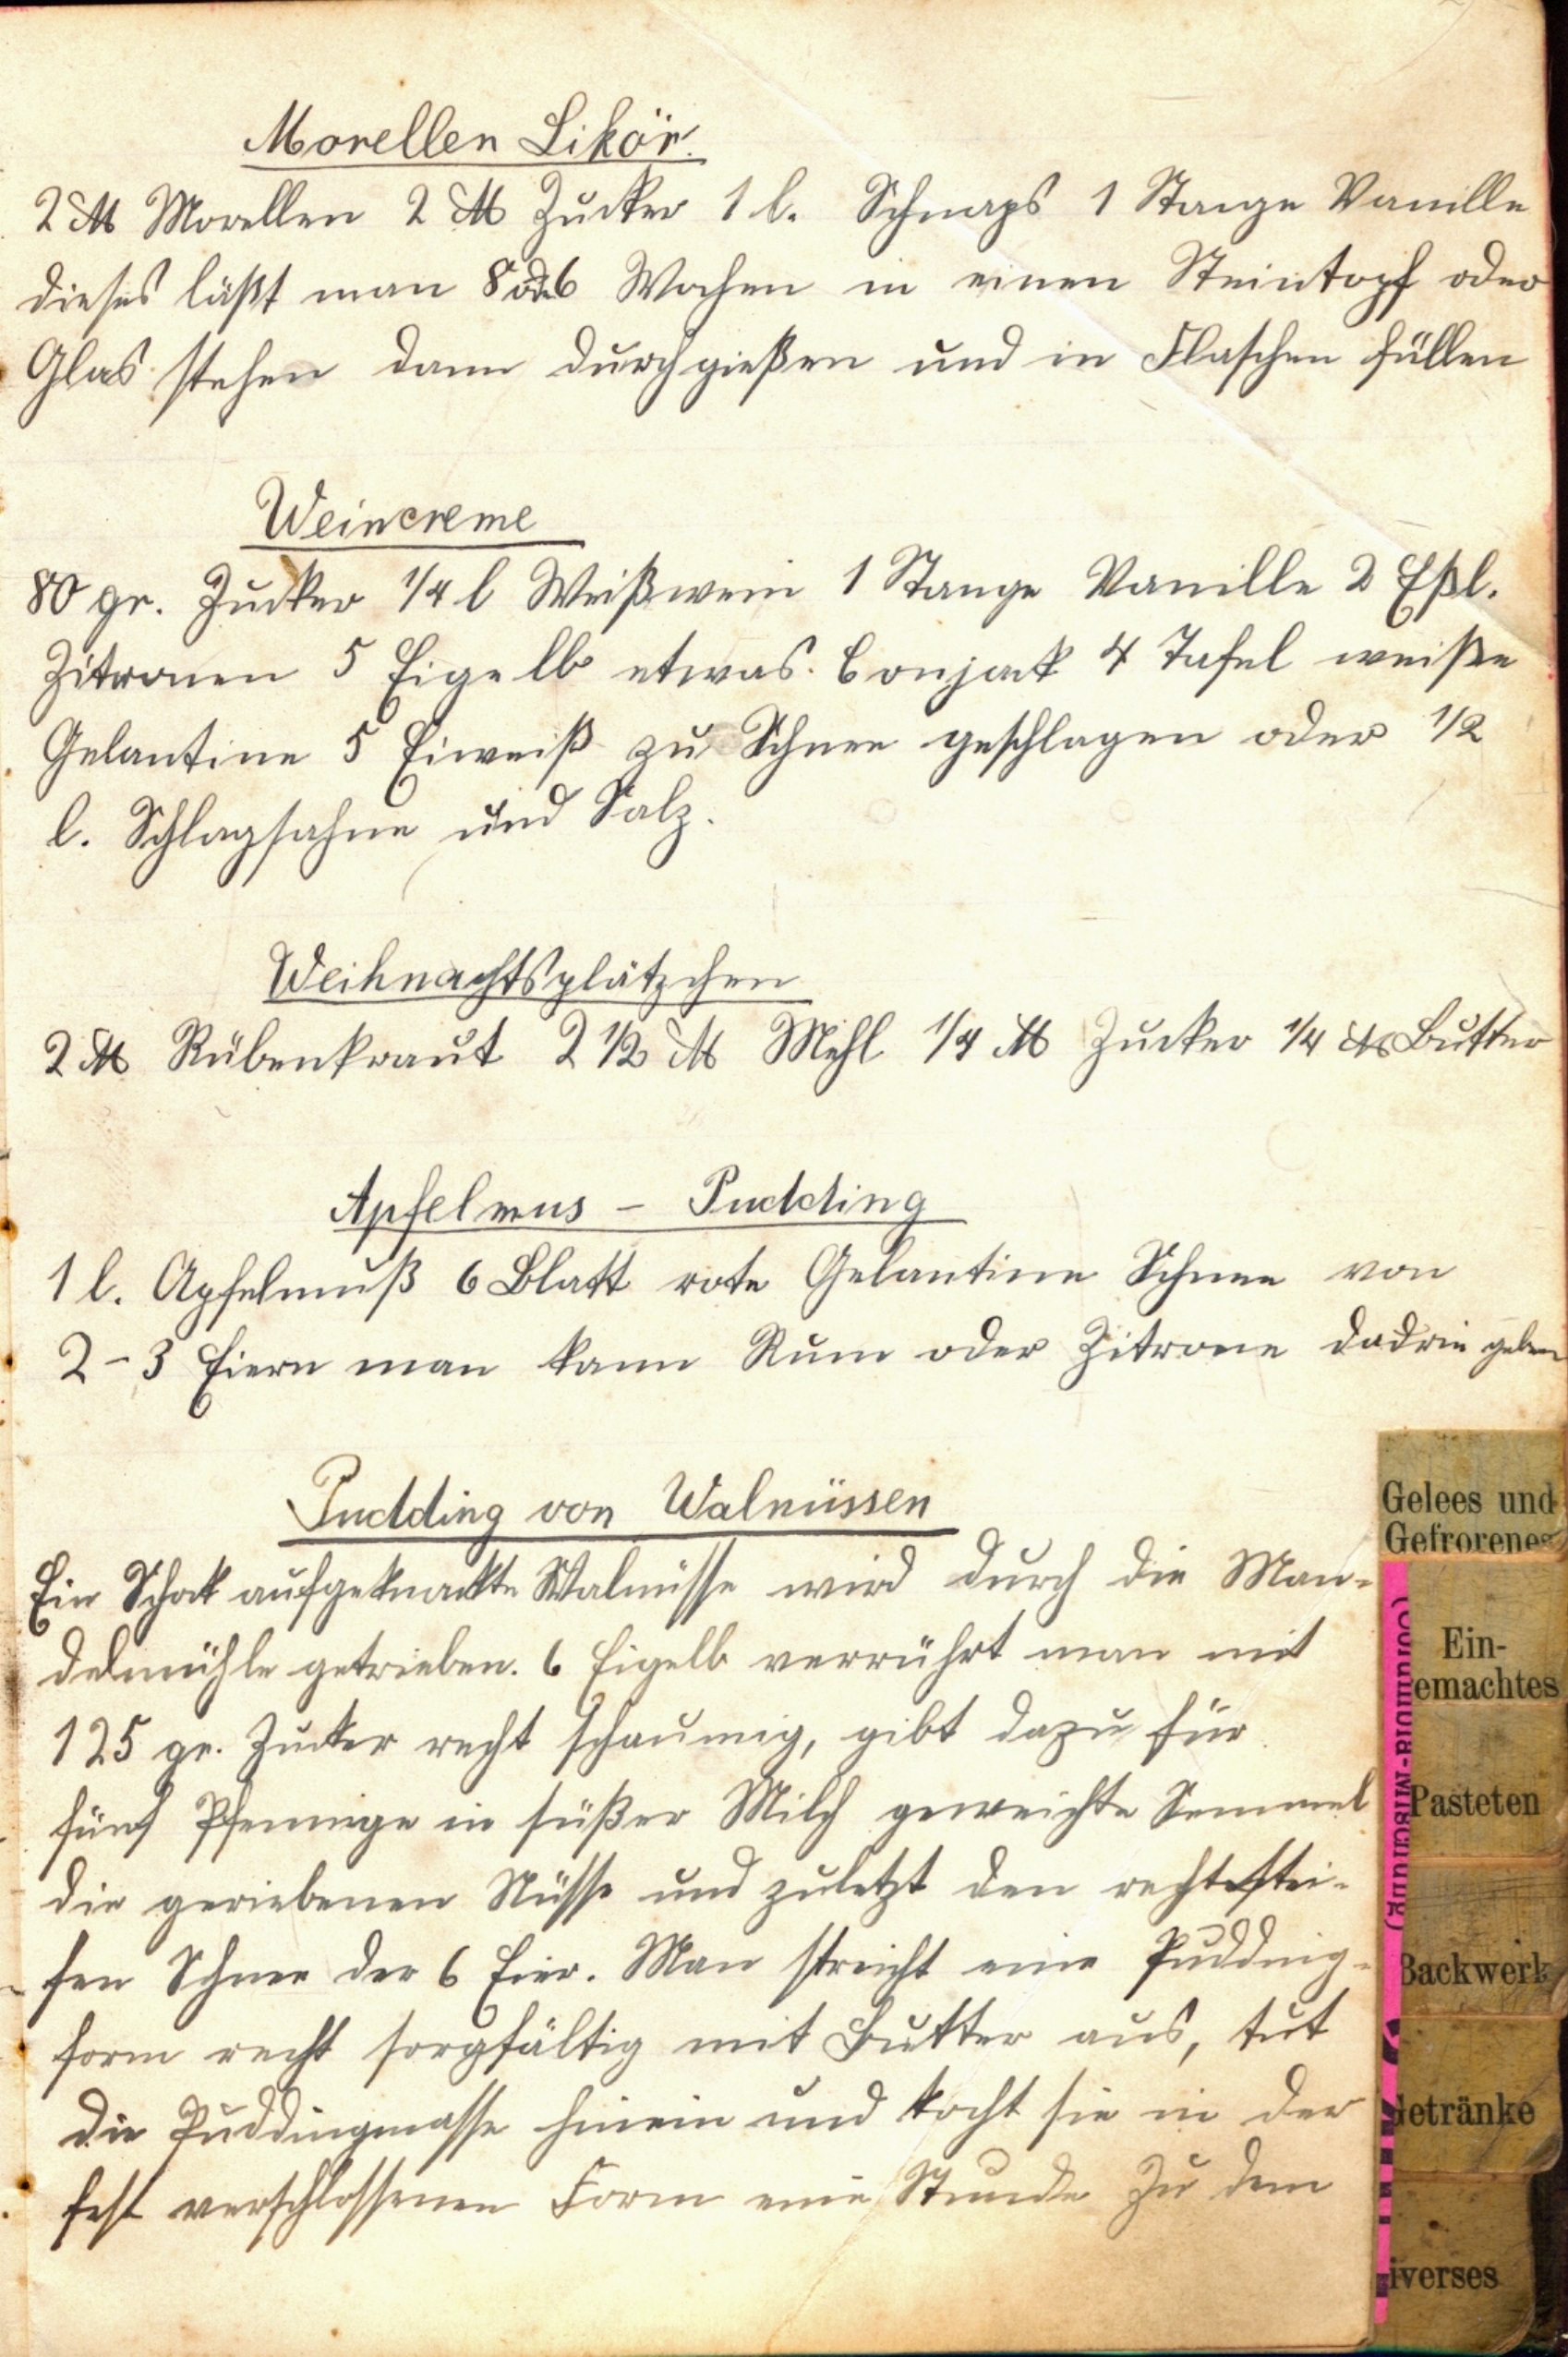 Morellen Likör.
2 ℔ Morellen 2 ℔ Zucker 1 l. Schnaps 1 Stange Vanille
dieses läßt man 8 od 6 Wochen in einen Steintopf oder
Glas stehen dann durchgießen und in Flaschen füllen
Weincreme
80 gr. Zucker 1/4 l Weißwein 1 Stange Vanille 2 Eßl.
Zitronen 5 Eigelb etwas Conjack 4 Tafel weiße
Gelantine 5 Eiweiß zu Schnee geschlagen oder 1/2
l. Schlagsahne und Salz.
Weihnachtsplätzchen
2 ℔ Rübenkraut 2 1/2 ℔ Mehl 1/4 ℔ Zucker 1/4 ℔ Butter
Apfelmus - Pudding
1 l. Apfelmuß 6 Blatt rote Gelantine Schnee von
2-3 Eiern man kann Rum oder Zitrone dadrin geben
Pudding von Walnüssen
Ein Schok aufgeknackte Walnüsse wird durch die Man-
delmühle getrieben. 6 Eigelb verrührt man mit
125 gr. Zucker recht schaumig, gibt dazu für
fünf Pfennige in süßer Milch geweichte Semmel
die geriebenen Nüsse und zuletzt den recht stei-
fen Schnee der 6 Eier. Man streicht eine Pudding-
form recht sorgfältig mit Butter aus, tut
die Puddingmasse hinein und kocht sie in der
fest verschlossenen Form eine Stunde Zu dem
Gelees und
Gefrorenes
Ein-
emachtes
Pasteten
Backwerk
Getränke
iverses